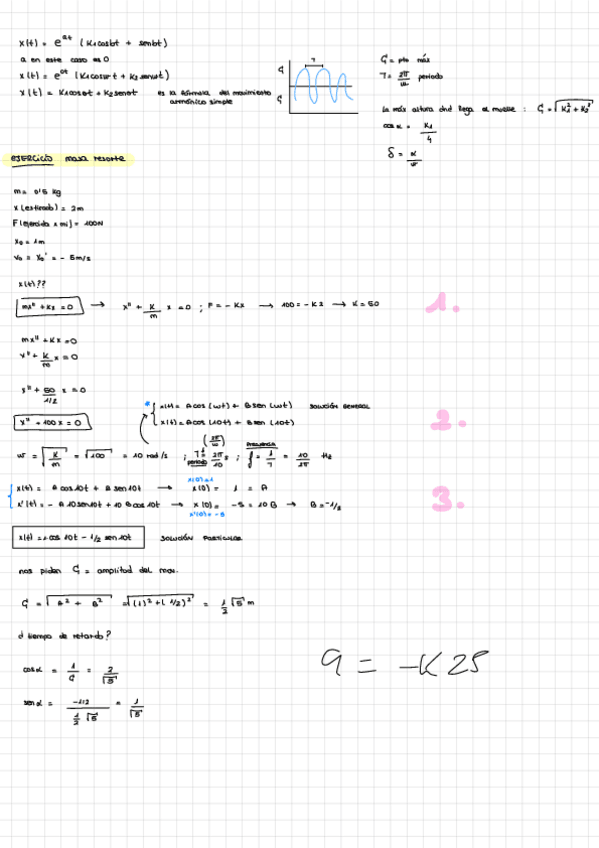 x(t) = e^at (K1cosbt + senbt)
a en este caso es 0
x(t) = e^0t (K1coswt + K2senwt)
x(t) = K1coswt + K2senwt es la fórmula del movimiento armónico simple
G = pto máx
T = 2π/w periodo
la máx altura dnd llega el muelle : G = √K1² + K2²
cos α = K1/4
δ = α/w
EJERCICIO masa resorte
m = 0'5 kg
x(estirado) = 2m
F(ejercida x mi) = 100N
x0 = 1m
v0 = x0' = - 5m/s
x(t)??
mx" + Kx = 0 → x" + K/m x = 0 ; F = - Kx → 100 = - K2 → K = 50
1.
mx" + Kx = 0
x" + K/m x = 0
x" + 50/1/2 x = 0
* x(t) = A cos (wt) + B sen (wt) SOLUCIÓN GENERAL
x(t) = A cos (10t) + B sen (10t)
x" + 100x = 0
2.
(2π/w)
w = √K/m = √100 = 10 rad/s ; T = 2π/10 s ; f = 1/T = 10/2π Hz
periodo
FRECUENCIA
x(0)=1
x(t) = A cos 10t + B sen 10t → x(0) = 1 = A
x'(t) = - A 10sen10t + 10 B cos 10t → x(0) = -5 = 10 B → B = -1/2
x'(0) = -5
3.
x(t) = 1 cos 10t - 1/2 sen 10t SOLUCIÓN PARTICULAR
nos piden G = amplitud del mov.
G = √A² + B² = √(1)² + (1/2)² = 1/2 √5 m
d tiempo de retardo?
cos α = 1/G = 2/√5
sen α = -1/2 / 1/2 √5 = 1/√5
9 = -K25